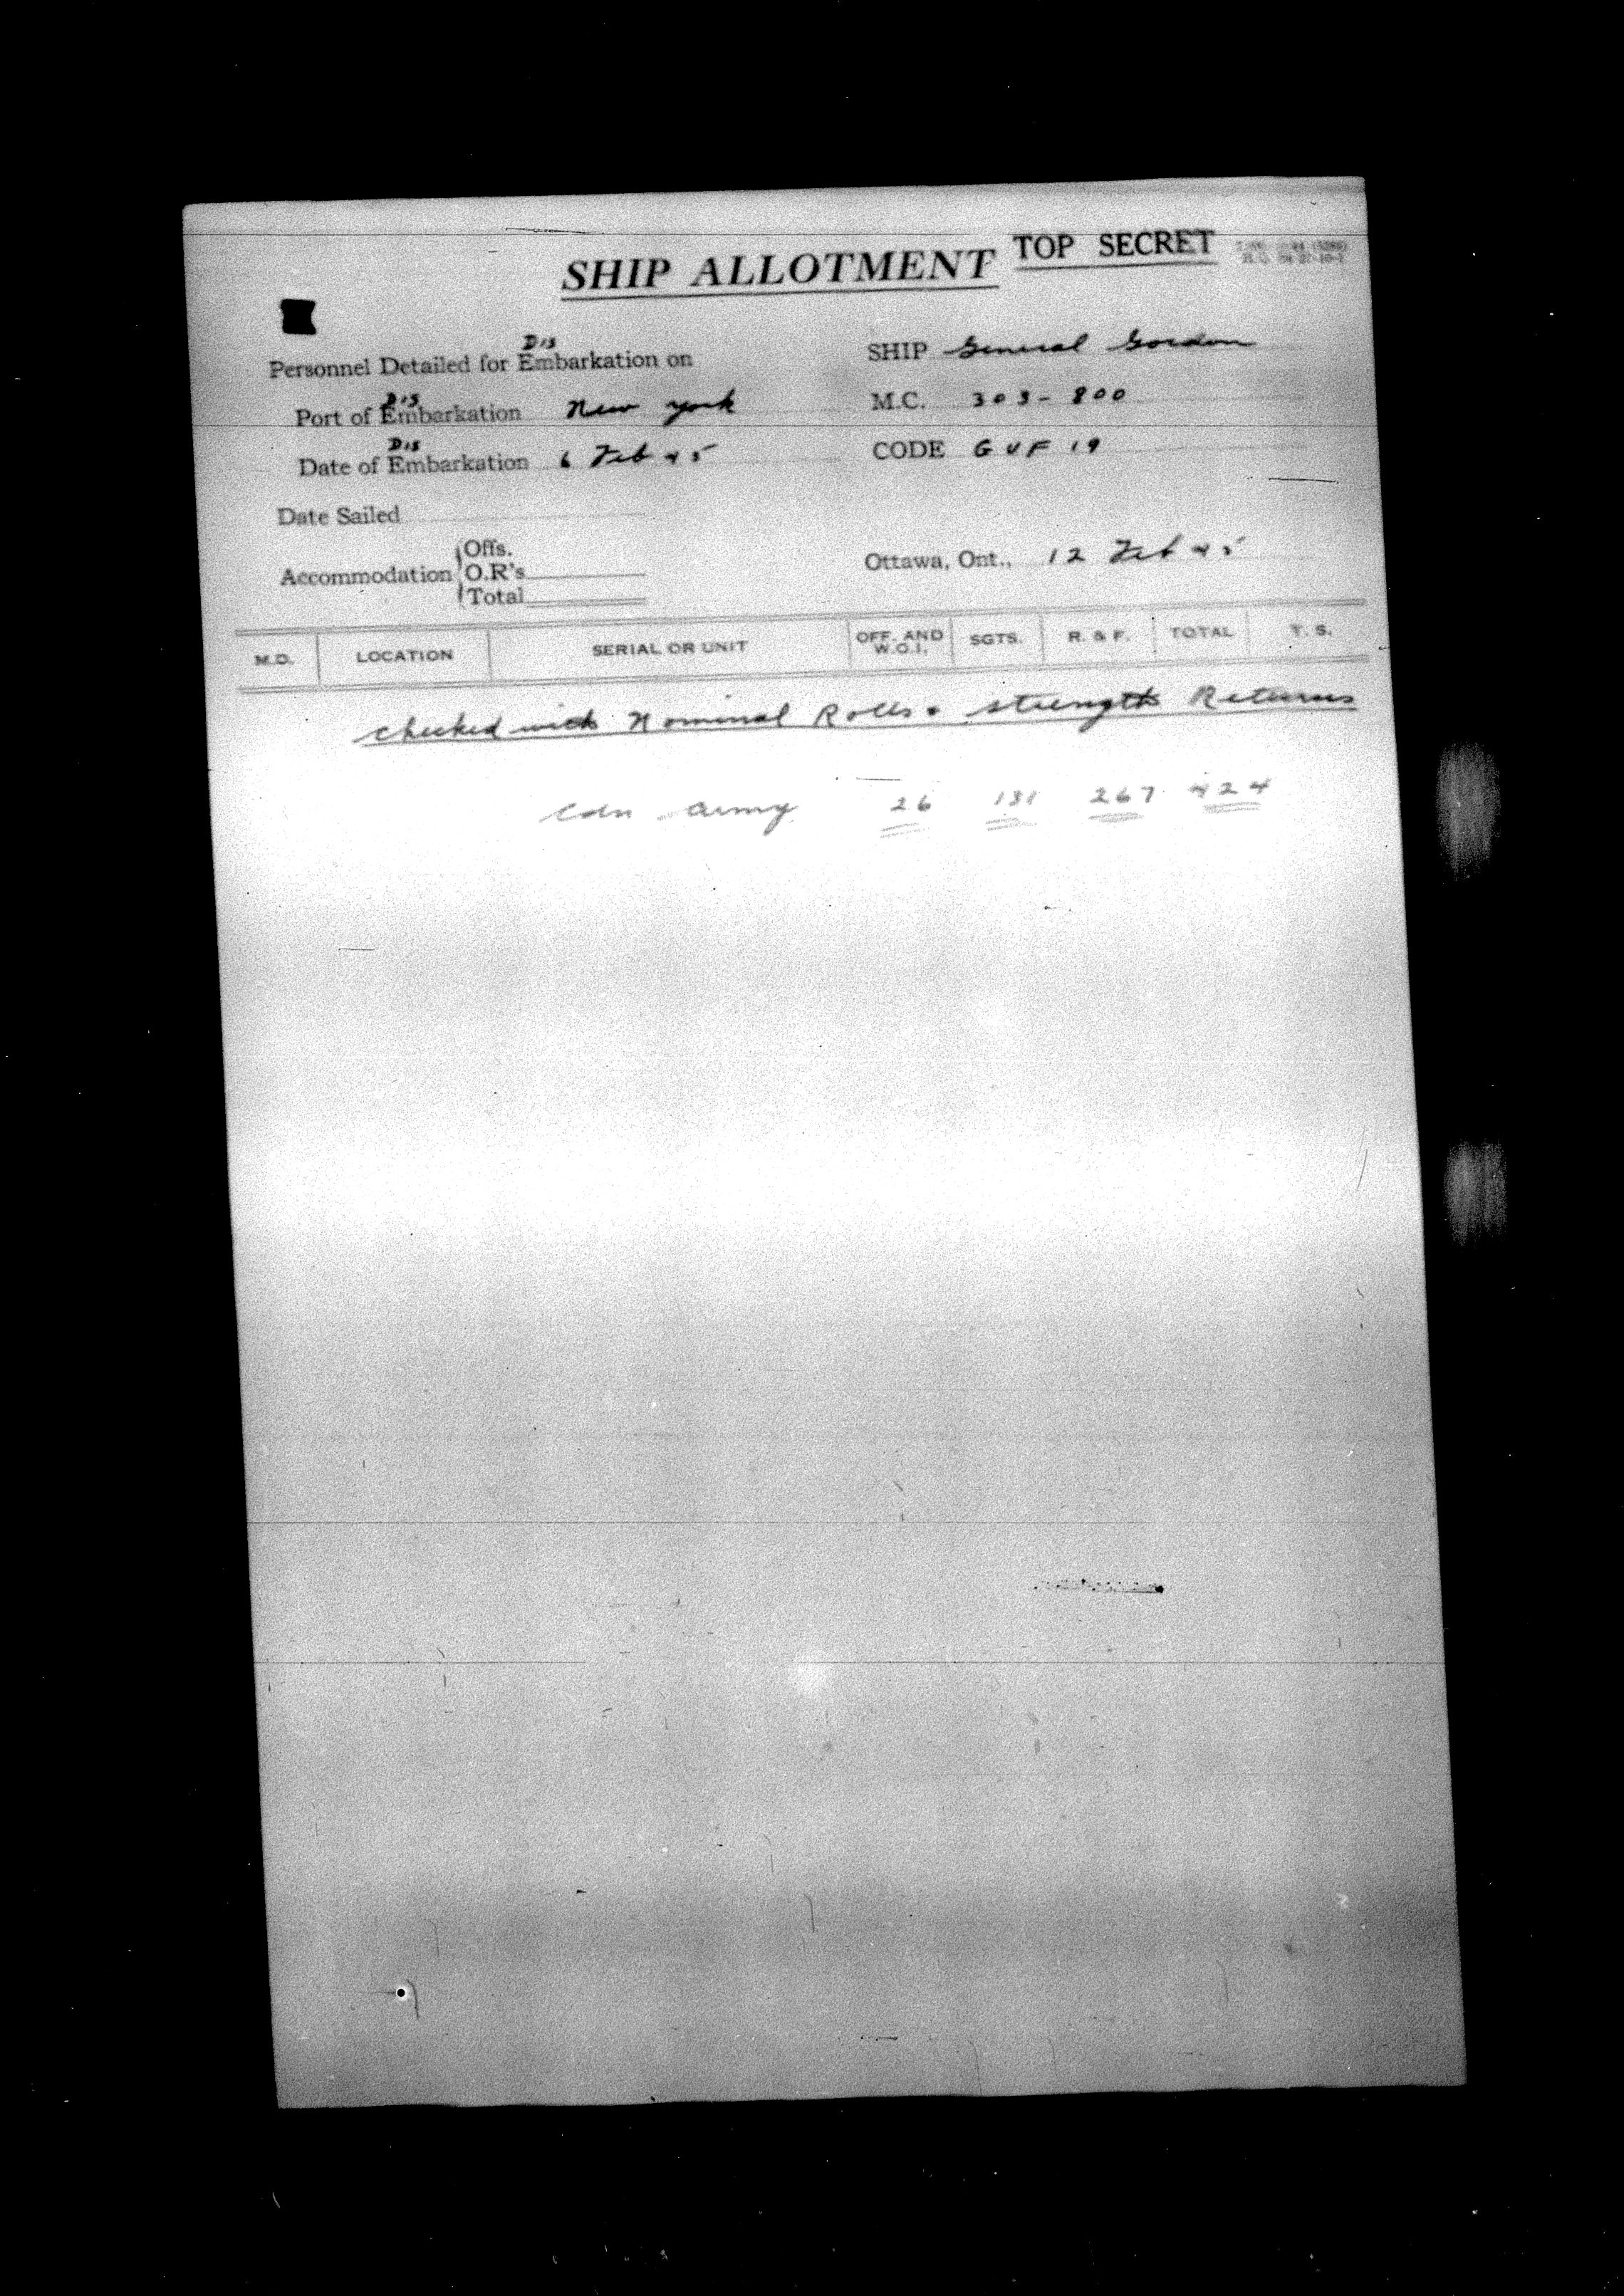 SHIP ALLOTMENT TOP SECRET
Dis
Personnel Detailed for Embarkation on
SHIP General Gordon
Dis
Port of Embarkation New York
M.C. 303-800
Dis
Date of Embarkation 6 Feb 45
CODE GUF 19
Date Sailed
Accommodation Offs.
O.R's
Total
Ottawa, Ont., 12 Feb 45
M.D. LOCATION SERIAL OR UNIT OFF. AND W.O.I. SGTS. R. & F. TOTAL T. S.
checked with Nominal Rolls & strength Returns
Cdn Army 26 131 267 424